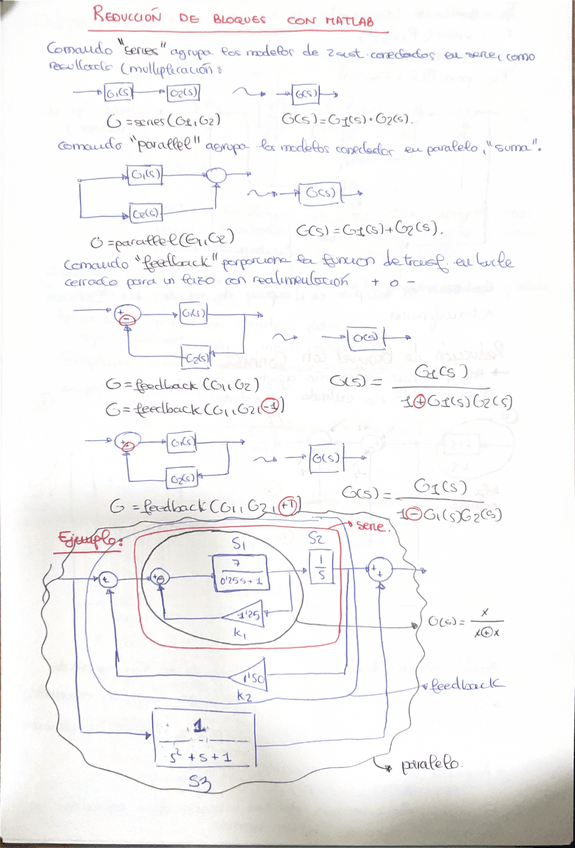 REDUCCIÓN DE BLOQUES CON MATLAB
Comando "series" agrupa los modelos de 2 sist. conectados en serie, como
resultado (multiplicación:
G1(s) G2(s) G(s)
G=series(G1,G2) G(s)=G1(s)·G2(s).
Comando "parallel" agrupa los modelos conectados en paralelo, "suma".
G1(s)
G(s)
G2(s)
G=parallel(G1,G2) G(s)=G1(s)+G2(s).
Comando "feedback" porporciona la funcion de transf en bucle
cerrado para un lazo con realimentación + o -
+ - G1(s)
G(s)
G2(s)
G=feedback(G1,G2) G(s) = G1(s) / 1+G1(s)G2(s)
G=feedback(G1,G2,-1)
G1(s)
G(s)
G2(s)
G=feedback(G1,G2,+1) G(s) = G1(s) / 1-G1(s)G2(s)
Ejemplo: serie.
S1 S2
7 / 0'25s+1
1 / s
+ +
1'25
K1
G(s) = x / x+x
1'50
K2
feedback
1 / s²+s+1
S3
paralelo.